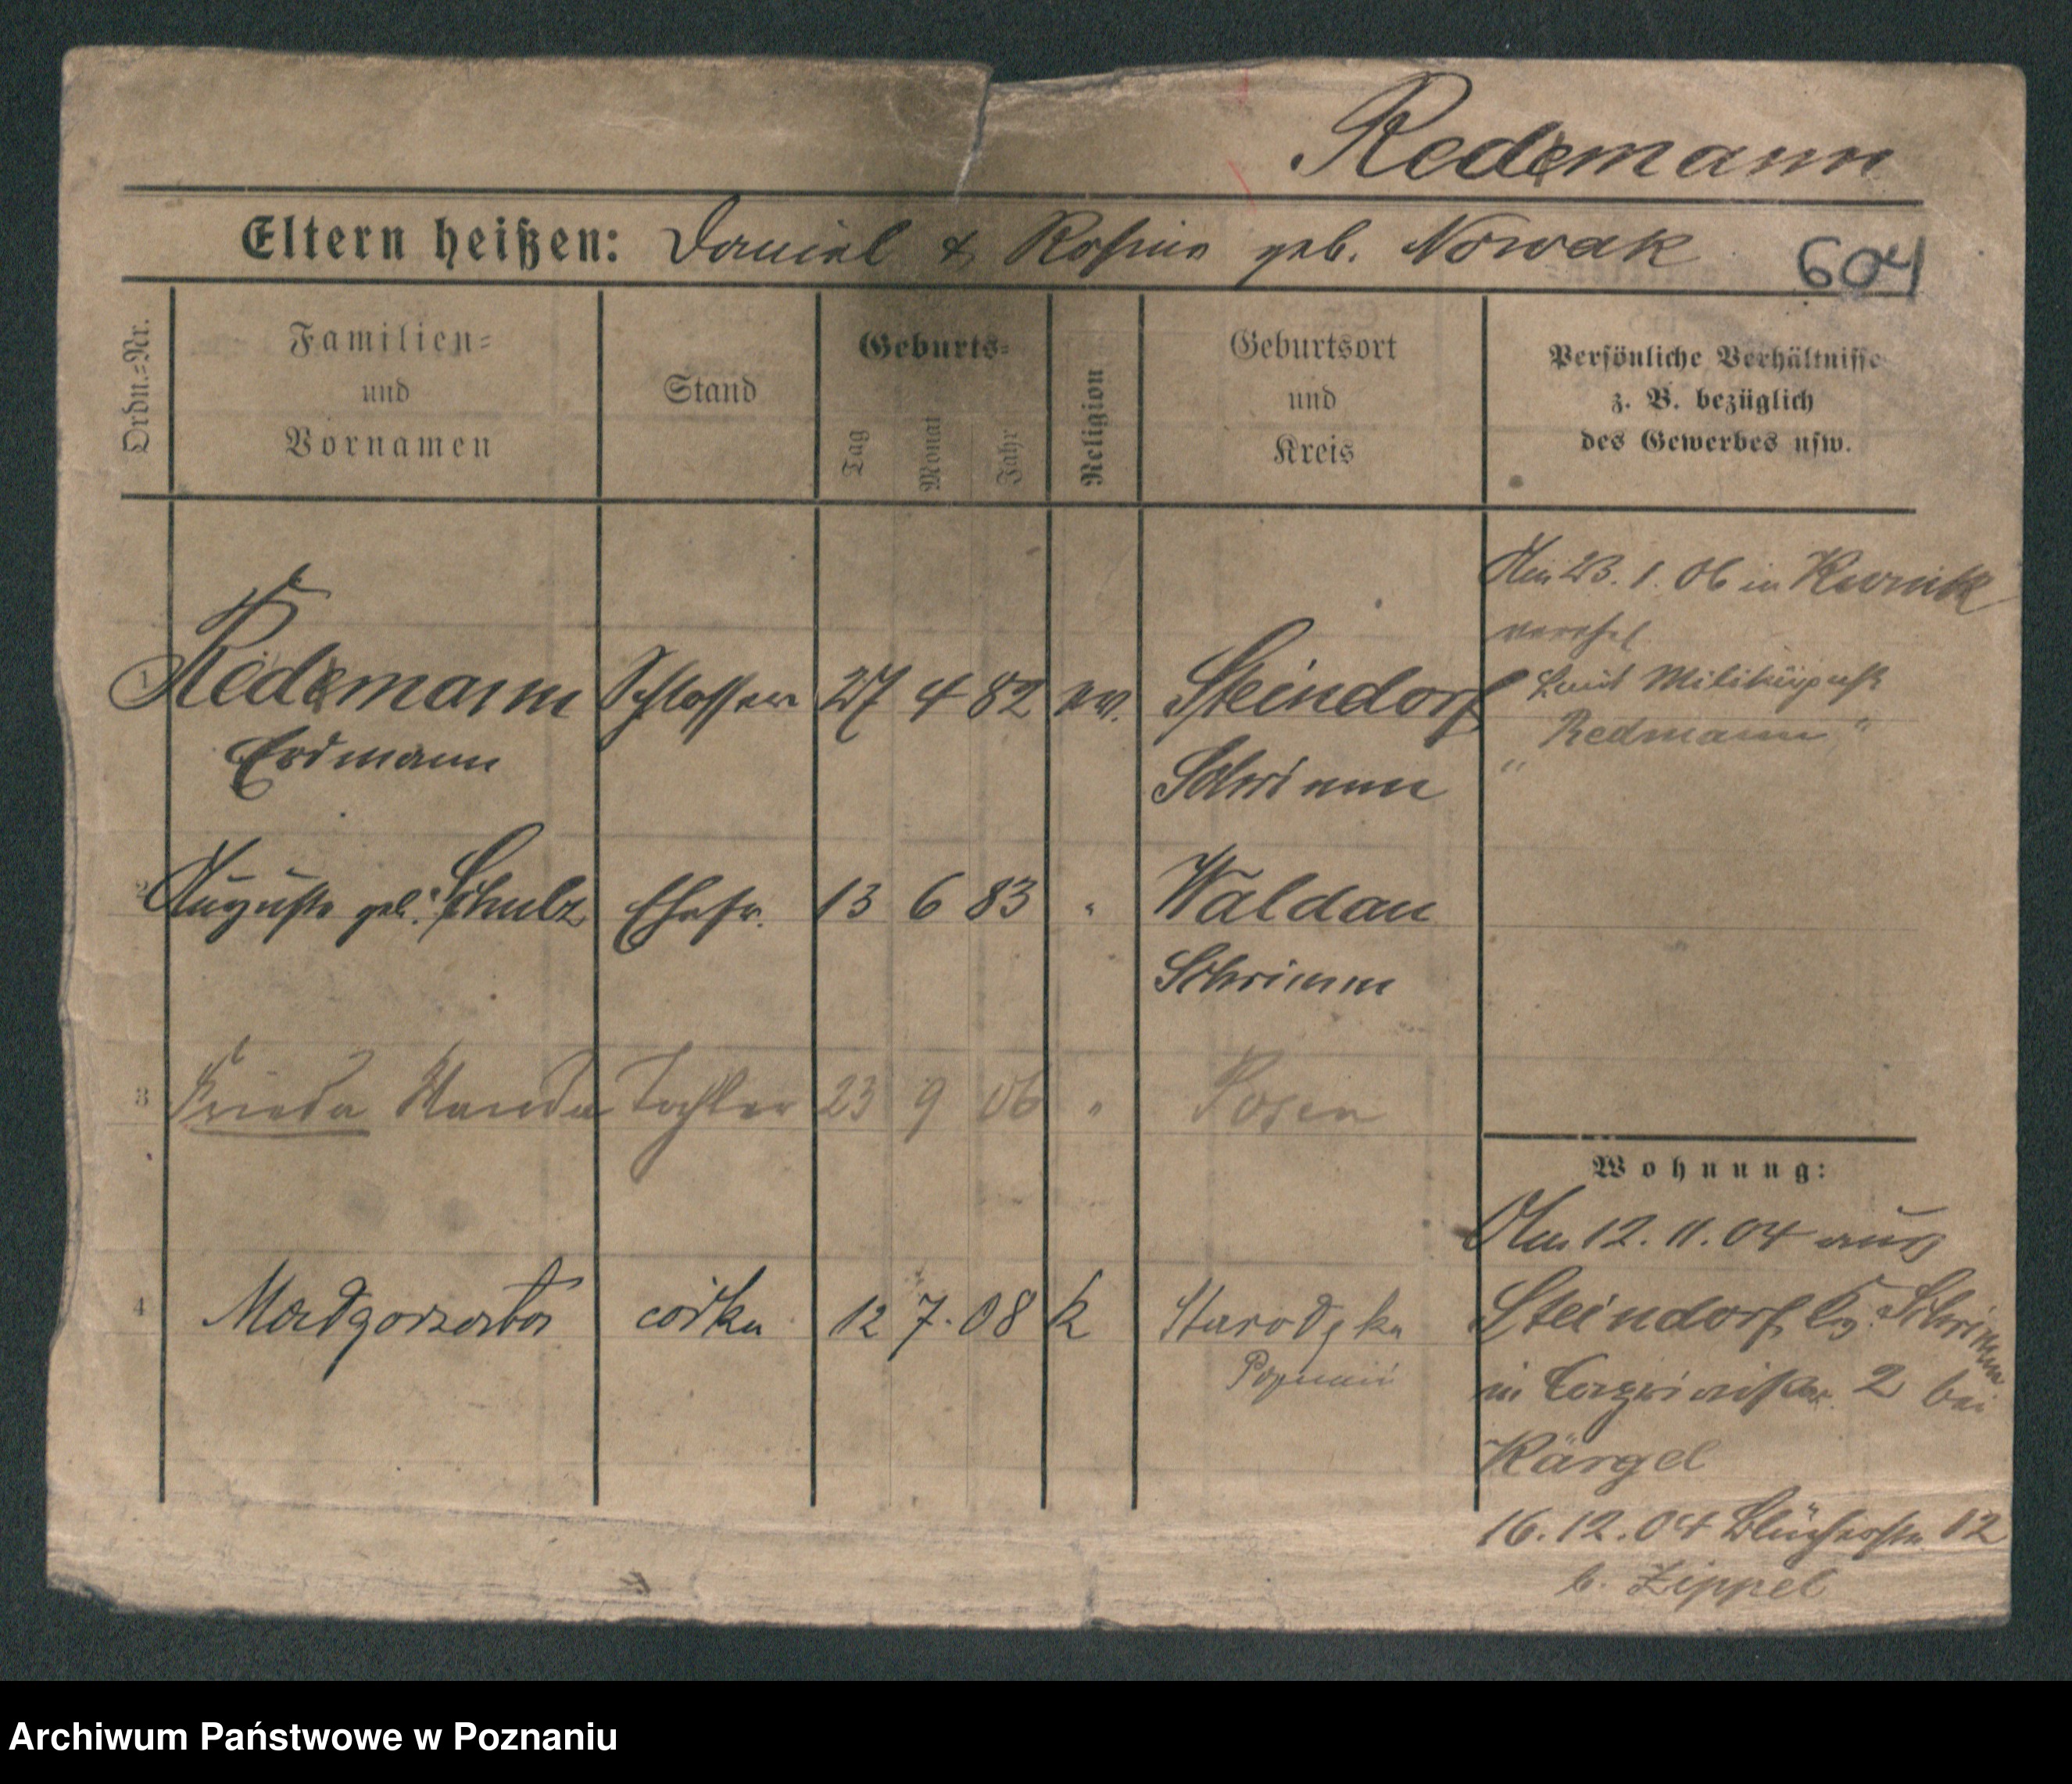 Redemann
Eltern heißen: Daniel & Rosine geb. Nowak
604
Ordn.-Nr.
Familien-
und
Vornamen
Stand
Geburts-
Tag
Monat
Jahr
Religion
Geburtsort
und
Kreis
Persönliche Verhältnisse
z. B. bezüglich
des Gewerbes usw.
1
Redemann
Erdmann
Schlosser
27 4 82
ev.
Steindorf
Schrimm
Am 23. 1. 06 in Kurnik
verehel.
Laut Militärpaß
„Redmann“
2
Auguste geb. Schulz
Ehefr.
13 6 83
"
Waldau
Schrimm
3
Frieda Wanda
Tochter
23 9 06
"
Posen
4
Małgorzata
córka
12 7. 08
k
Starołęka
Poznań
Wohnung:
Am 12. 11. 04 aus
Steindorf Kr. Schrimm
in 2 bei
Kärgel
16. 12. 04 Blücherstr. 12
b. Zippel
Archiwum Państwowe w Poznaniu